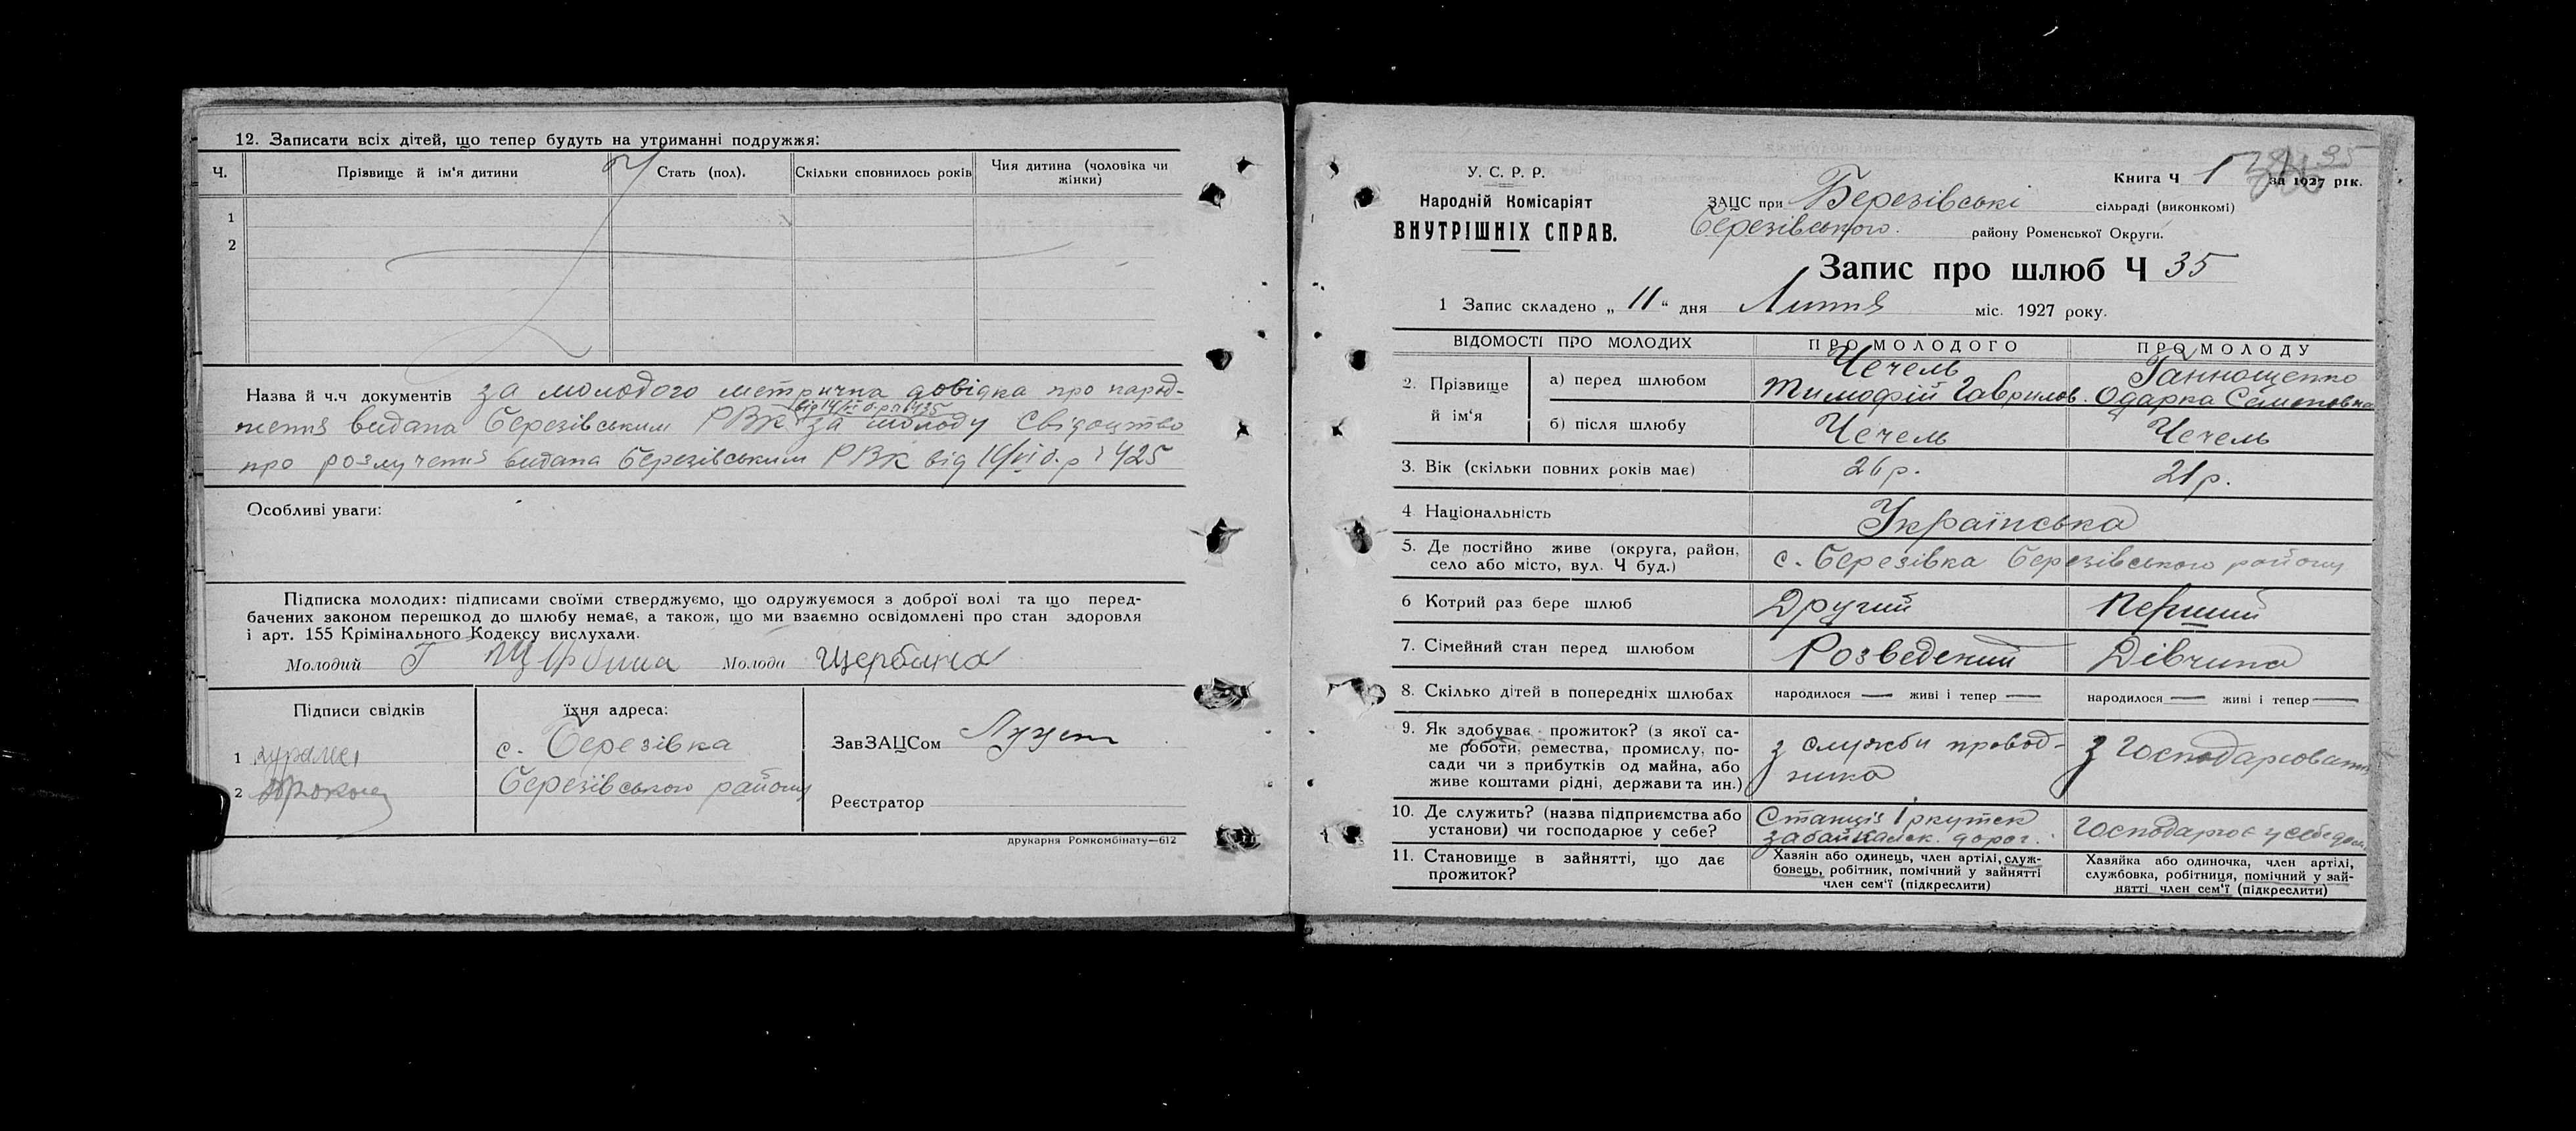 12. Записати всіх дітей, що тепер будуть на утриманні подружжя:
Ч. Прізвище й ім'я дитини Стать (пол). Скільки сповнилось років Чия дитина (чоловіка чи жінки)
1
2
Назва й ч.ч документів за молодого метрична довідка про народ-
від 14/VI б.р. 
ження видана Березівським РВК за молоду свідоцтво
про розлучення видана Березівським РВК від б.р 425
Особливі уваги:
Підписка молодих: підписами своїми стверджуємо, що одружуємося з доброї волі та що перед-
бачених законом перешкод до шлюбу немає, а також, що ми взаємно освідомлені про стан здоровля
і арт. 155 Крімінального Кодексу вислухали.
Молодий Г Щербина Молода Щербина
Підписи свідків їхня адреса:
1 с. Березівка
2 Березівського району
ЗавЗАЦСом
Реєстратор
друкарня Ромкомбінату—612
У. С. Р. Р.
Народній Комісаріят
ВНУТРІШНІХ СПРАВ.
35
Книга Ч 1 за 1927 рік.
ЗАЦС при Березівські сільраді (виконкомі)
Березівського району Роменської Округи.
Запис про шлюб Ч 35
1 Запис складено „ 11 “ дня Липня міс. 1927 року.
ВІДОМОСТІ ПРО МОЛОДИХ ПРО МОЛОДОГО ПРО МОЛОДУ
2. Прізвище й ім'я а) перед шлюбом Чечель Тимофій Гаврилов. Ганнощенко Одарка Семеновна
б) після шлюбу Чечель Чечель
3. Вік (скільки повних років має) 26 р. 21 р.
4 Національність Українська
5. Де постійно живе (округа, район,
село або місто, вул. Ч буд.) с. Березівка Березівського району
6 Котрий раз бере шлюб Другий Перший
7. Сімейний стан перед шлюбом Розведений Дівчина
8. Скілько дітей в попередніх шлюбах народилося — живі і тепер — народилося — живі і тепер —
9. Як здобуває прожиток? (з якої са-
ме роботи, ремества, промислу, по-
сади чи з прибутків од майна, або
живе коштами рідні, держави та ин.)
з служби провод-
ника
з господарювання
10. Де служить? (назва підприємства або
установи) чи господарює у себе?
Станція Іркутск
забайкальск. дорог.
Господарює у себе дома
11. Становище в зайнятті, що дає
прожиток?
Хазяін або одинець, член артілі, служ-
бовець, робітник, помічний у зайнятті
член сем'ї (підкреслити)
Хазяйка або одиночка, член артілі,
службовка, робітниця, помічний у зай-
нятті член сем'ї (підкреслити)